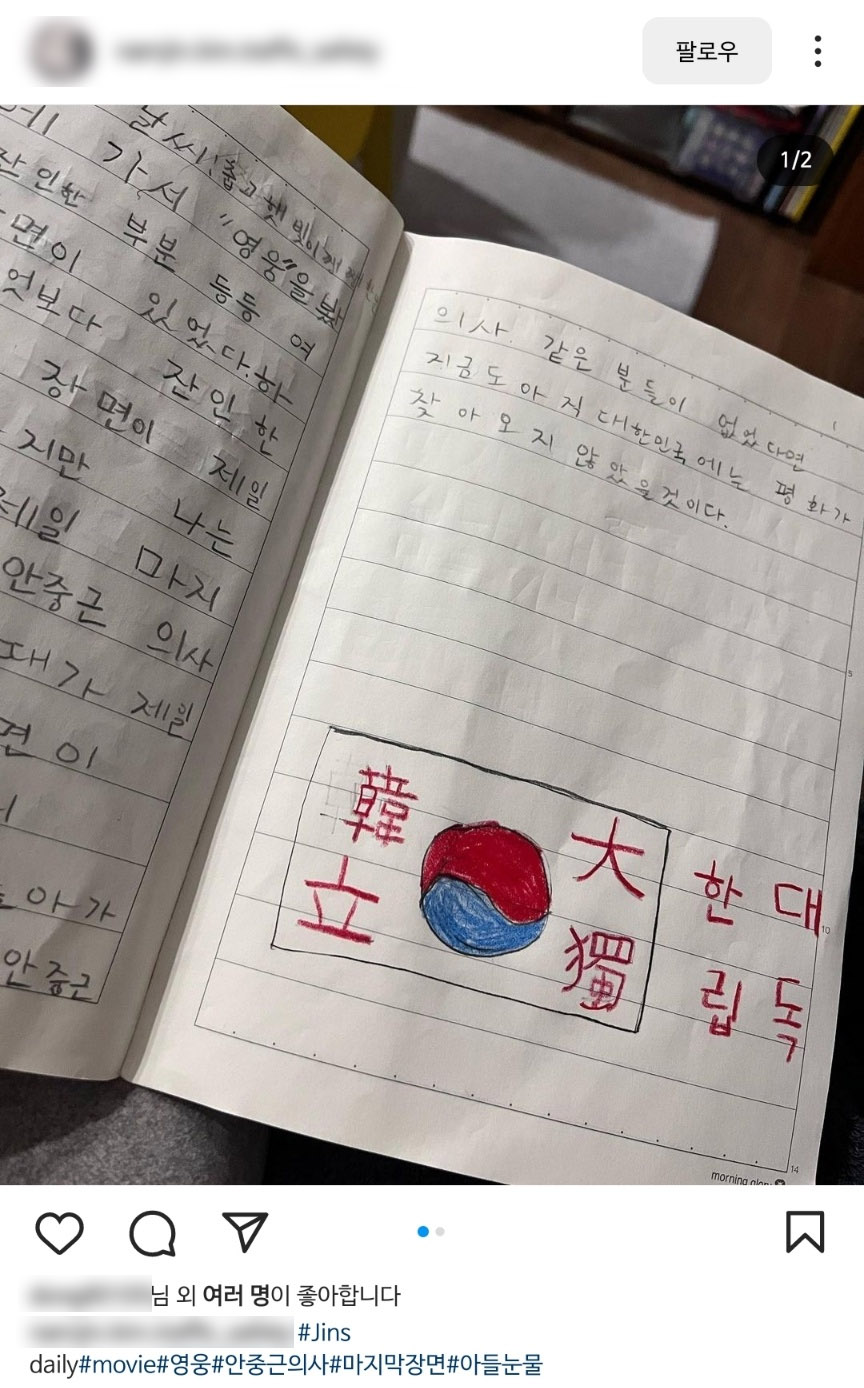 팔로우
1/2
날씨: 춥고 햇빛이
가서 "영웅"을 봤
잔인한 부분 등등 여
면이 있었다. 하
엇보다 잔인한
장면이 제일
지만 나는
제일 마지
안중근 의사
때가 제일
면이
아가
안중근
의사 같은 분들이 없었다면
지금도 아직 대한민국에는 평화가
찾아오지 않았을것이다.
韓 大
立 獨
한 대
립 독
5
10
14
morning glory
님 외 여러 명이 좋아합니다
#Jins
daily#movie#영웅#안중근의사#마지막장면#아들눈물